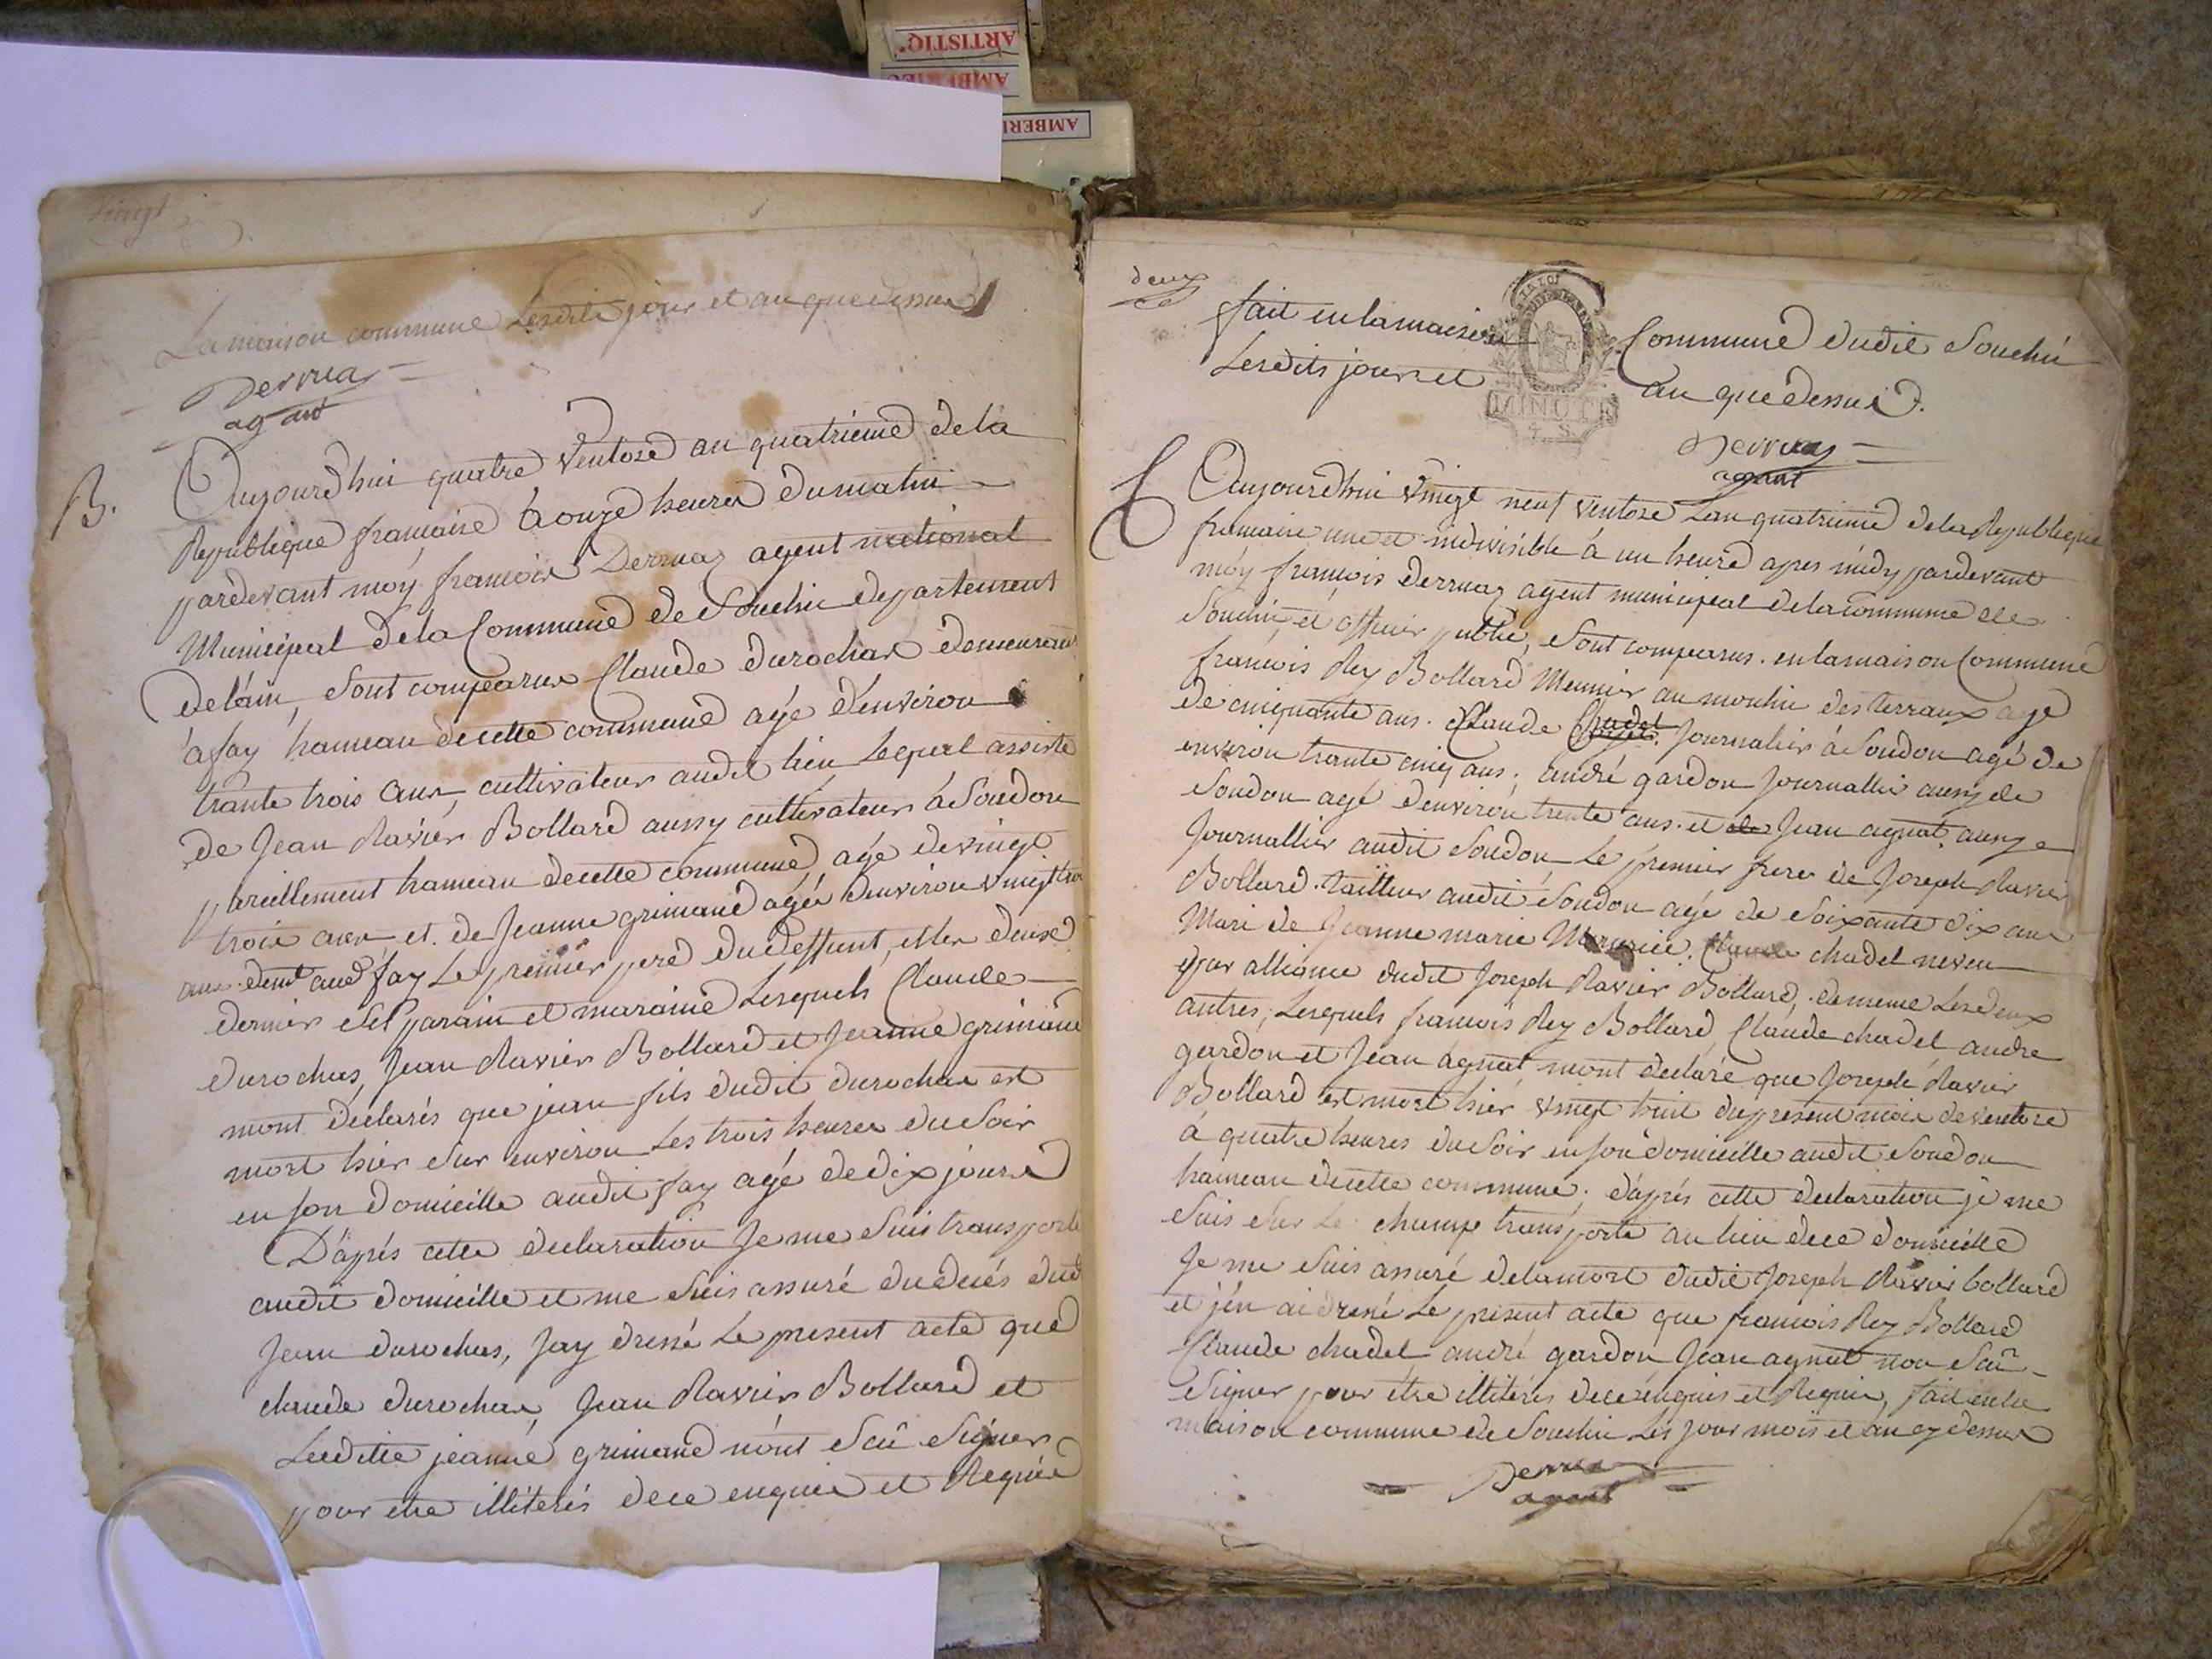 vingt
La maison commune Lesdits jour et an que dessus
Derruaz
agent
B.
Aujourd'hui quatre Ventose an quatrieme de la
Republique francaise à onze heures du matin
pardevant moy francois Derruaz agent national
Municipal de la Commune de Souclin departement
de l'ain, Sont comparus Claude durochas demeurant
à fay hameau de cette commune agé d'environ
trante trois ans, cultivateur audit lieu Lequel assisté
de Jean Ravier Bollard aussy cultivateur à Soudon
pareillement hameau de cette commune, agé de vingt
trois ans et de Jeanne grimand agée d'environ vingt trois
ans demt aud fay Le premier pere du deffunt, et les deux
dernier Ses parain et maraine Lesquels Claude
durochas, Jean Ravier Bollard et Jeanne grimand
mont déclarés que jean fils dudit durochas est
mort hier Sur environ Les trois heures du Soir
en Son domicille audit fay agé de dix jours
D'après cette declaration Je me Suis transporté
audit domicille et me Suis assuré du decés dud
Jean durochas, Jay dressé Le present acte que
claude durochas, Jean Ravier Bollard et
Laditte jeanne grimand n'ont Scû Signer
pour etre illiterés de ce enquis et Requis
deux
fait en la maison Commune dudit Souclin
Lesdits jours et an que dessus.
MINUTE
Derruaz
agent
C
Aujourd'hui vingt neuf ventose Lan quatrieme de la Republique
francaise une et indivisible à un heure apres midy pardevant
moy francois Derruaz agent municipal de la commune de
Souclin, et officier public, Sont comparus en la maison Commune
francois Rey Bollard Meunier au moulin des terraux agé
de cinquante ans. Claude Chadel Journalier à Soudon agé de
environ trante cinq ans; andré gardon Journallier aussy de
Soudon agé d'environ trente ans. et de Jean agnat, aussy
Journallier audit Soudon Le premier frere de Joseph Ravier
Bollard tailleur audit Soudon agé de Soixante dix ans
Mari de Jeanne marie Claude chadel neveu
par alliance dudit Joseph Ravier Bollard, de meme Les deux
autres, Lesquels francois Rey Bollard, Claude chadel, andre
gardon et Jean agnat mont declaré que Joseph Ravier
Bollard est mort hier vingt huit du present mois de ventose
à quatre heures du Soir en son domicille audit Soudon
hameau de cette commune; d'après cette declaration je me
Suis Sur Le champ transporté au lieu de ce domicille
Je me Suis assuré de la mort dudit Joseph Ravier bollard
et j'en ai dressé Le present acte que francois Rey Bollard
Claude chadel andré gardon Jean agnat non Scû
Signer pour être illitérés de ce enquis et Requis, fait en la
maison commune de Souclin Les jour mois et an cy dessus
Derruaz
agent
AMBERI
ARTISTIQ